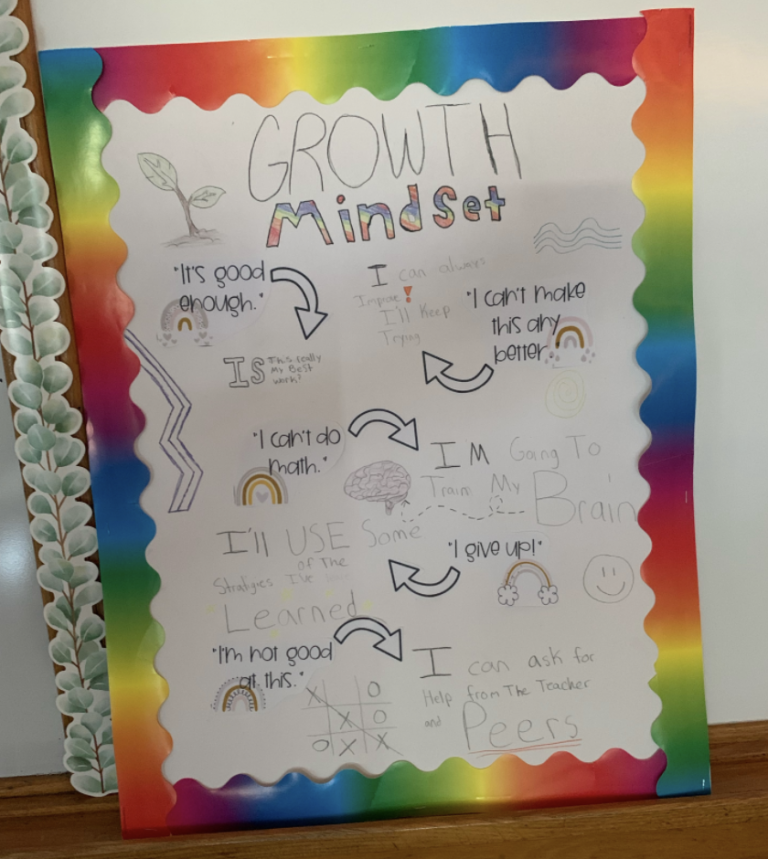 GROWTH
MindSet
"It's good
enough."
Is This really
My Best
work?
"I can't make
this any
better."
I can always
Improve!
I'll Keep
Trying
"I can't do
math."
IM Going To
Train My Brain
"I give up!"
I'll USE Some
of The
Stratigies I've
Learned
"I'm not good
at this."
I can ask for
Help from The Teacher
and Peers
X O
X O
O X X